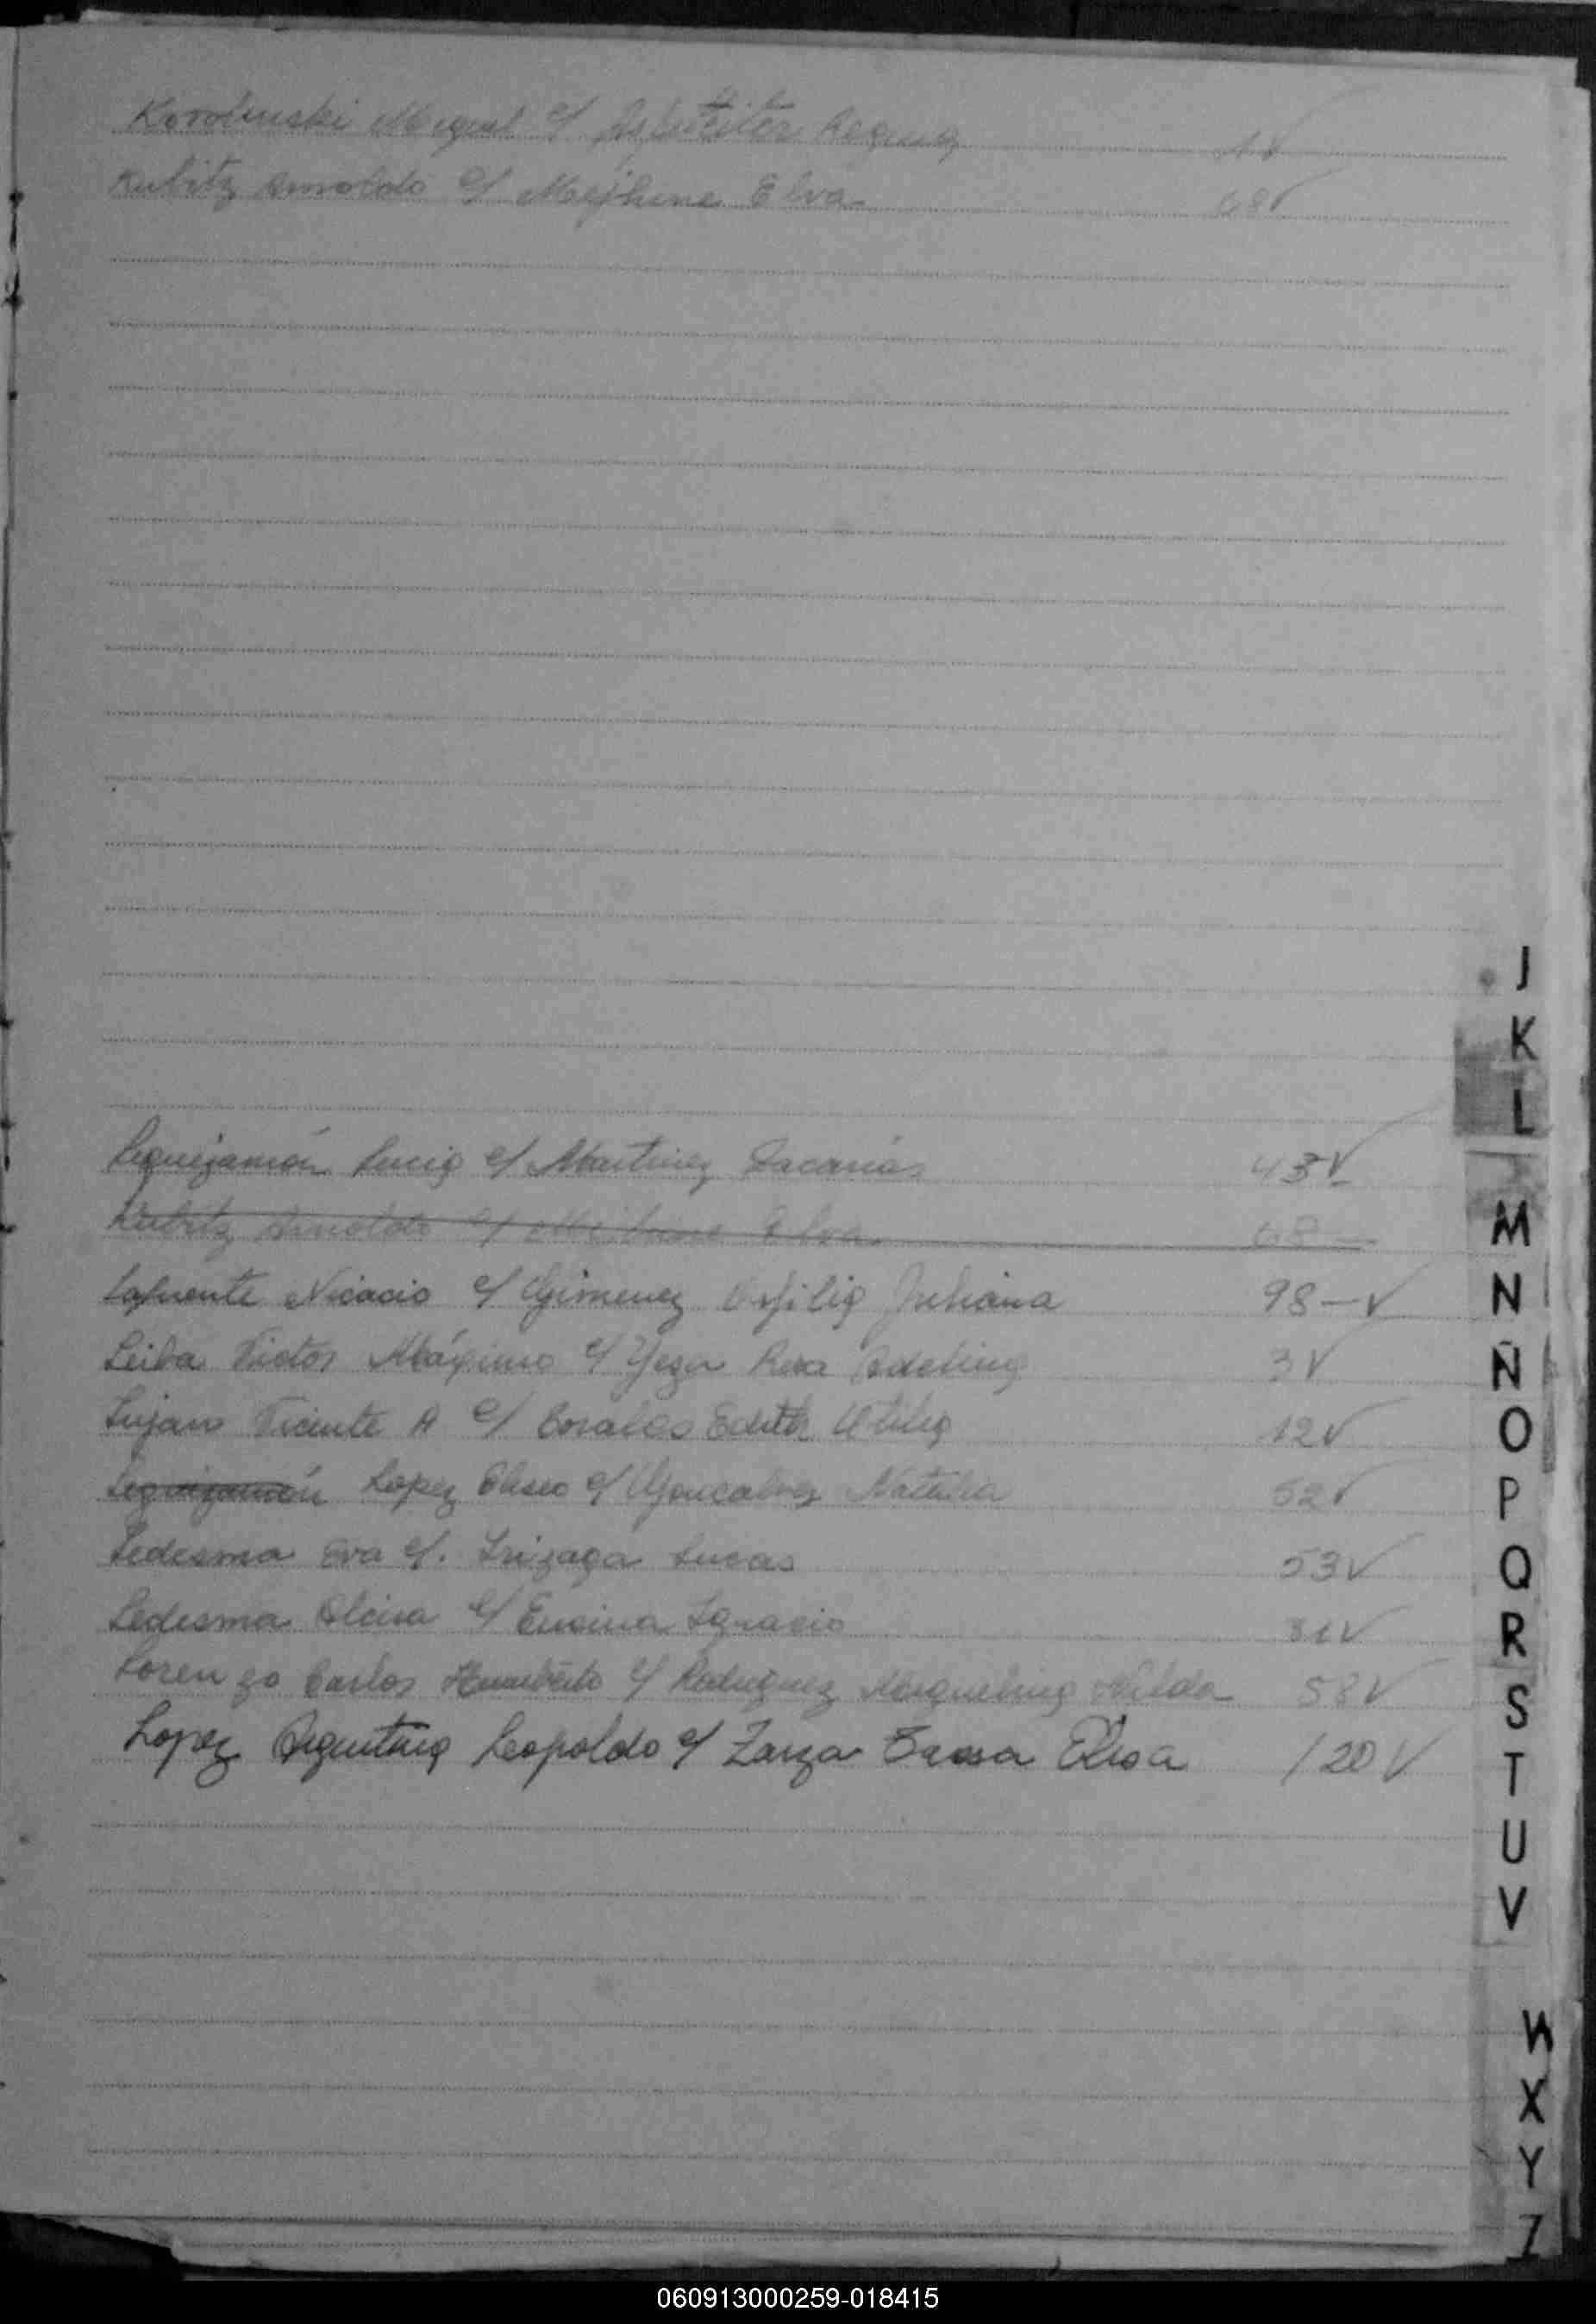 Korolinski Miguel c/ Regina 1 V
Kubitz Arnoldo c/ Mejhine Elva 68 V
J
K
L
Leguizamón Lucia c/ Martinez Zacarias 43 V
Kubitz Arnoldo c/ Elva 68 —
M
Lafuente Nicacio c/ Gimenez Orfilia Juliana 98 — V
N
Leiba Victor Máximo c/ Yeza Rosa Adelina 3 V
Ñ
Lujan Vicente A c/ Corales Edith Otilia 12 V
O
Leguizamón Lopez Eliseo c/ Gonçalvez Natalia 52 V
P
Ledesma Eva c/. Irizaga Lucas 53 V
Q
Ledesma Alcira c/ Encina Ignacio 81 V
R
Lorenzo Carlos Humberto c/ Rodriguez Miguelina Nilda 58 V
S
Lopez Argentino Leopoldo c/ Zarza Elisa 120 V
T
U
V
W
X
Y
Z
060913000259-018415